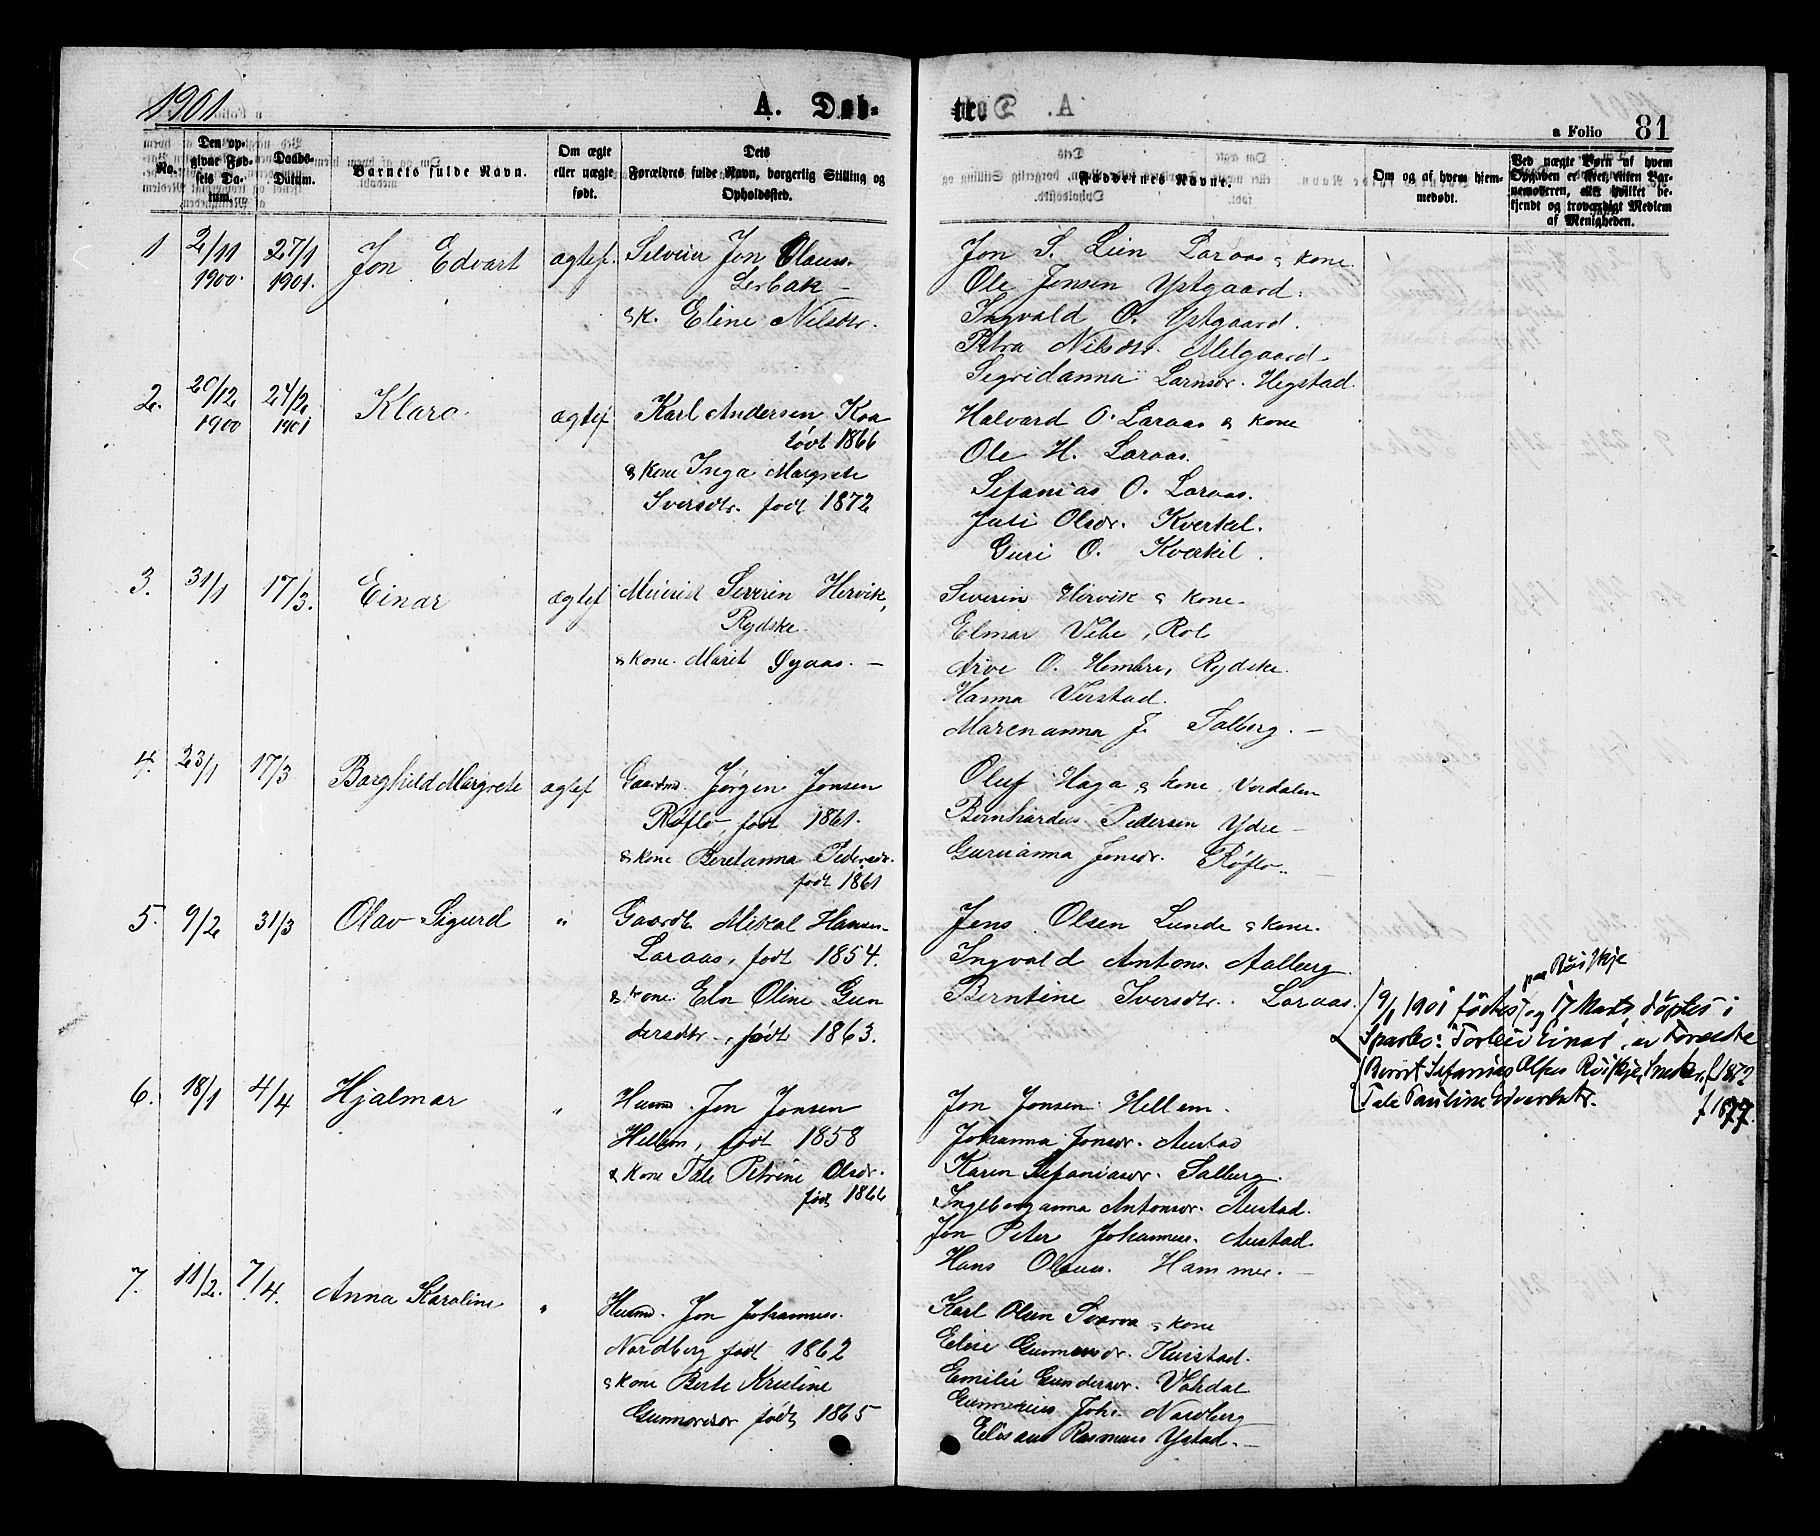 1901.
A. Døb-
te.
a Folio 81
No.
Den op-
givne Fød-
sels Da-
tum.
Daabs-
Datum.
Barnets fulde Navn.
Om ægte
eller uægte
født.
Dets
Forældres fulde Navn, borgerlig Stilling og
Opholdssted.
Faddernes Navne.
Om og af hvem hjem-
medøbt.
Ved uægte Børn af hvem
Opgaven er skeet, enten Bar-
nemoderen, eller hvilket be-
kjendt og troværdigt Medlem
af Menigheden.
1
2/11
1900.
27/1
1901.
Jon Edvart
ægtef.
Selveier Jon Olaus.
Lerbak –
& K. Eline Nilsdtr.
Jon S. Lein Laraas & kone
Ole Jonsen Ystgaard.
Ingvald O. Ystgaard.
Petra Nilsdtr. Melgaard.
Segridanna Larsdr. Hegstad.
2.
20/12
1900
24/2
1901
Klara
ægtef
Karl Andersen Kaa
født 1866
& kone Inga Margrete
Iversdtr. født 1872
Halvard O. Laraas & kone
Ole H. Laraas.
Sefanias O. Laraas.
Juli Olsdr. Kverkil.
Guri O. Kverkil.
3.
31/1
17/3.
Einar
ægtef
Meierist Severin Hervik,
Rydske.
& kone. Marit Øyaas. –
Severin Hervik & kone.
Elmar Vebe, Rol
Arve O. Hembre, Rydske.
Hanna Verstad.
Marenanna J. Salberg. –
4.
23/1
17/3
Borghild Margrete
ægtef
Gaardm. Jørgen Jonsen
Røflo, født 1861.
& kone Beretanna Pedersdr.
født 1861
Oluf Haga & kone, Verdalen
Bernhardus Pedersen Ydse –
Gurianna Jonsdr. Røflo.
5.
9/2
31/3
Olav Sigurd
"
Gaardb. Mikal Hansen
Laraas, født 1854.
& kone. Eln Oline Gun
dersdtr., født 1863.
Jens Olsen Lunde & kone.
Ingvald Antons. Aalberg
Berntine Iversdtr. Laraas.
paa Røiskje
9/1 1901 fødtes og 17 Marts døptes i
Sparbo: Torleiv Einar, av Foreldre
Bernt Sefanias Olsen Røiskje, f 1872
Tale Pauline Edvardsdtr.
f 1877.
6.
18/1
4/4
Hjalmar
"
Husmd. Jon Jonsen
Hellem, født 1858
& kone Tale Petrine Olsdr.
født 1866
Jon Jonsen Hellem.
Johanna Jonsdr. Austad
Karen Sefaniasdr. Salberg.
Ingeborganna Antonsdr. Austad.
Jon Peter Johannes. Austad.
Hans Olsen Hammer. –
7.
11/2.
7/4.
Anna Karoline
"
Husmd. Jon Johannes.
Nordberg født 1862
& kone Berte Kristine
Gunnarsdr født 1865
Karl Olsen Svarva & kone
Elise Gunnarsdr. Kvistad.
Emilie Gundersdr. Vohdal
Gunnerius Joh. Nordberg
Elisæus Rasmus Ystad. –